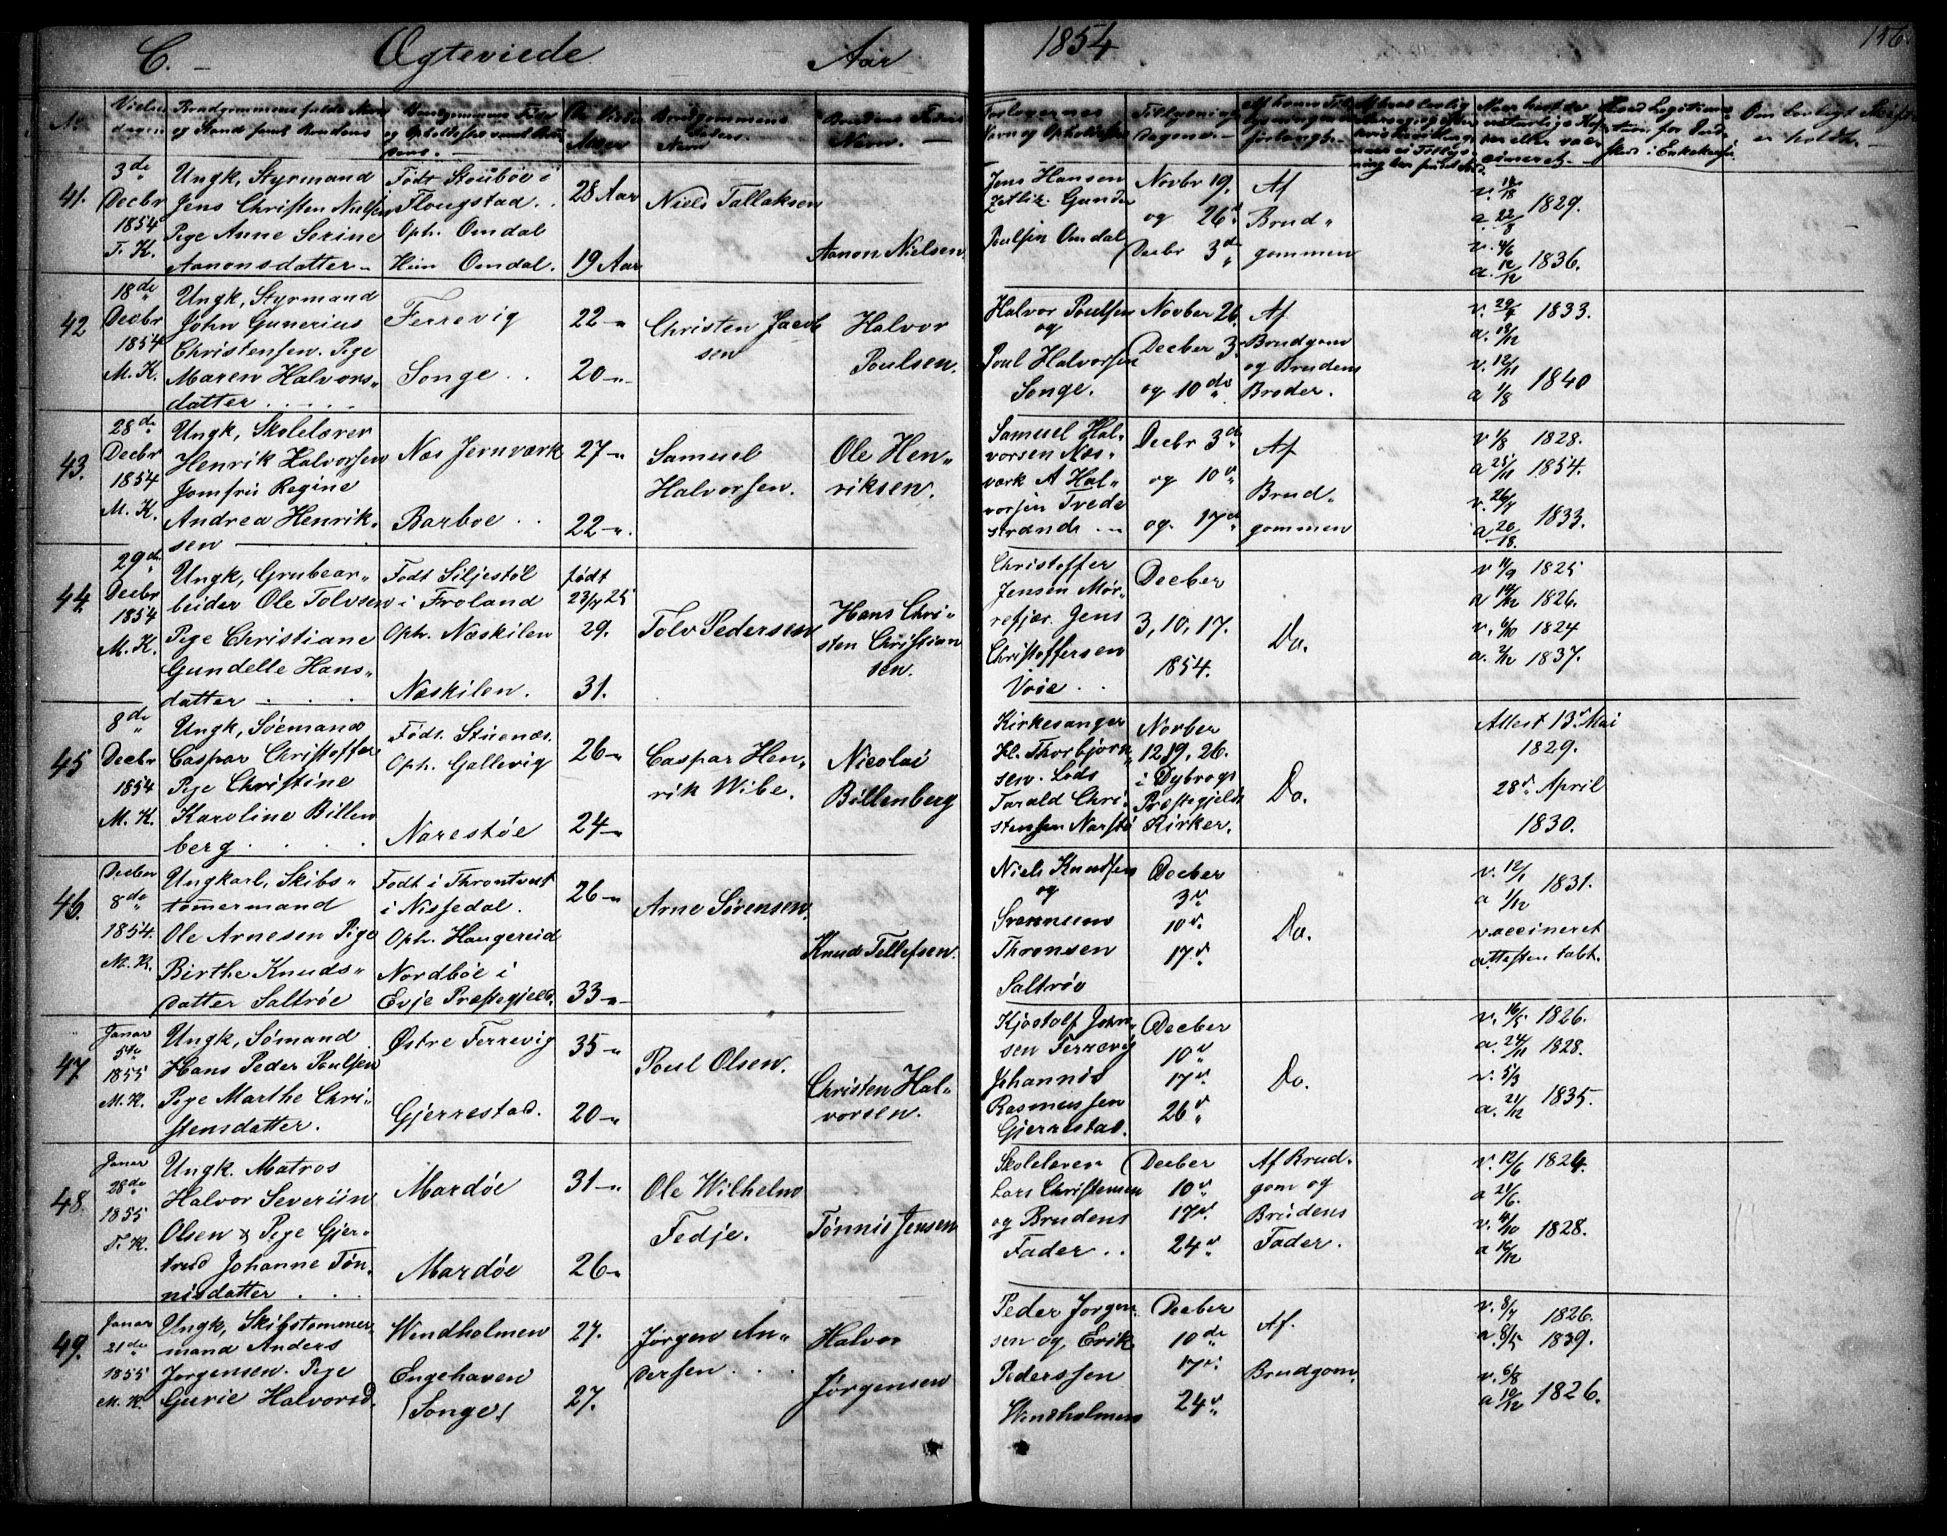 C. Ægteviede Aar 1854 156.
No
Vielses dagen
Brudgommens fulde Navn og Stand samt Brudens
Brudgommens Føde og Opholdssted samt Brudens.
De Viedes Alder
Brudgommens Faders Navn
Brudens Faders Navn.
Forlovernes Navn og Opholdssted
Tillysnings Dagene.
41.
3de
Decbr
1854
T. K.
Ungk, Styrmand
Jens Christen Nielsen
Pige Anne Serine
Aanonsdatter
Födt Stoubøe i
Flougstad.
Oph. Omdal
Hun Omdal.
28 Aar
19 Aar
Niels Tallaksen
Aanon Nielsen
Jens Hansen
Zetliz. Gunder
Poulsen Omdal
Novbr 19.
og 26d
Decbr 3de
Af
Brud"
gommen
v. 14/8
a. 22/8 1829.
v. 4/6
a. 12/12 1836.
42
18de
Decbr
1854
M. K.
Ungk, Styrmand
John Gunerius
Christensen. Pige
Maren Halvors"
datter
Ferrevig
Songe
22
20
Christen Jacob
sen
Halvor
Poulsen.
Halvor Poulsen
og
Poul Halvorsen
Songe.
Novber 26.
Decber 3
og 10de
Af
Brudgom
og Brudens
Broder.
v. 29/7 1833.
a. 18/12
v. 12/11
a 1/8 1840
43.
28de
Decbr
1854
M. K.
Ungk, Skolelærer
Henrik Halvorsen
Jomfru Regine
Andrea Henrik"
sen
Næs Jernværk
Barboe
27
22
Samuel
Halvorsen.
Ole Hen"
riksen.
Samuel Hal"
vorsen Næs"
værk A Hal"
vorsen Tvede
strand
Decbr 3de
og 10d
og 17de
Af
Brud"
gommen
v 1/8 1828.
a 25/11 1854.
v. 26/7
a. 20/18. 1833.
44.
29de
Decbr
1854
M. K.
Ungk, Grubear"
beider Ole Tolvsen
Pige Christiane
Gundelle Hans"
datter
Födt Siljestöl
i Froland
Oph. Næskilen
Næskilen.
født
23/4 25
29.
31.
Tolv Pedersen
Hans Chri"
sten Christian
sen.
Christoffer
Jensen Mør"
refjær. Jens
Christoffersen
Voie
Decber
3, 10, 17.
1854.
Do.
v 11/9 1825
a 14/12 1826.
v. 6/10 1824
a. 2/12 1837.
45
8de
Decbr
1854
M. K.
Ungk, Söemand
Caspar Christoffer
Pige Christine
Karoline Billen
berg
Födt Stuenæs
Oph. Gallevig
Narestöe
26
24
Caspar Hen"
rik Wibe.
Nicolai
Billenberg
Kirkesanger
Kl. Thorbjørn"
sen. Lods
Tarald Chri"
stensen Narstö
Novber
12, 19, 26.
i Dybvogs
Præstegjelds
Kirker.
Do.
Attest 13d Mai
1829.
28d April
1830.
46.
Decber
8de
1854.
M. K.
Ungkarl, Skibs"
tømmermand
Ole Arnesen Pige
Birthe Knuds"
datter Saltröe
Födt i Throntveit
i Nissedal.
Oph. Haugereid
Nordböe i
Evje Præstegjeld.
26
33
Arne Sörensen.
Knud Tellefsen.
Niels Knudsen
og
Svennum
Thronsen
Saltröe
Decber
3d
10d.
17d
Do.
v. 12/1
a 1/12 1831.
vaccineret
attesten tabt.
47
Januar
5te
1855
M. K.
Ungk, Sømand
Hans Peder Poulsen
Pige Marthe Chri"
stensdatter.
Østre Ferrevig
Gjerrestad.
35
20
Poul Olsen.
Christen Hal"
vorsen.
Kjøstolf John"
sen Ferrevig
Johannis
Rasmussen
Gjerrestad.
Decber
10d
17d.
26d
Do.
v. 16/5 1826.
a. 24/11 1828.
v. 5/3
a. 21/12 1835.
48.
Januar
28de
1855
T. K.
Ungk. Matros
Halvor Severiin
Olsen & Pige Gjer"
trud Johanne Tön"
nisdatter
Mardöe
Mardöe
31
26
Ole Wilhelm
Fedje.
Tönnis Jensen
Skolelærer
Lars Christensen
og Brudens
Fader
Decber
10d
17d.
24d
Af Brud"
gom og
Brudens
Fader.
v. 12/6 1824.
a 21/6.
v. 4/10
a 16/12 1828.
49.
Januar
21de
1855
M. K.
Ungk, Skibstømmer"
mand Anders
Jørgensen. Pige
Gurie Halvorsd.
Windholmen
Engehaven
(Songe)
27.
27.
Jørgen An"
dersen
Halvor
Jørgensen
Peder Jørgen"
sen og Erik
Pedersen
Windholmen
Decber
10de
17d.
24d
Af.
Brudgom.
v. 8/7 1826.
a. 8/5 1839.
v. 6/8
a 10/12 1826.